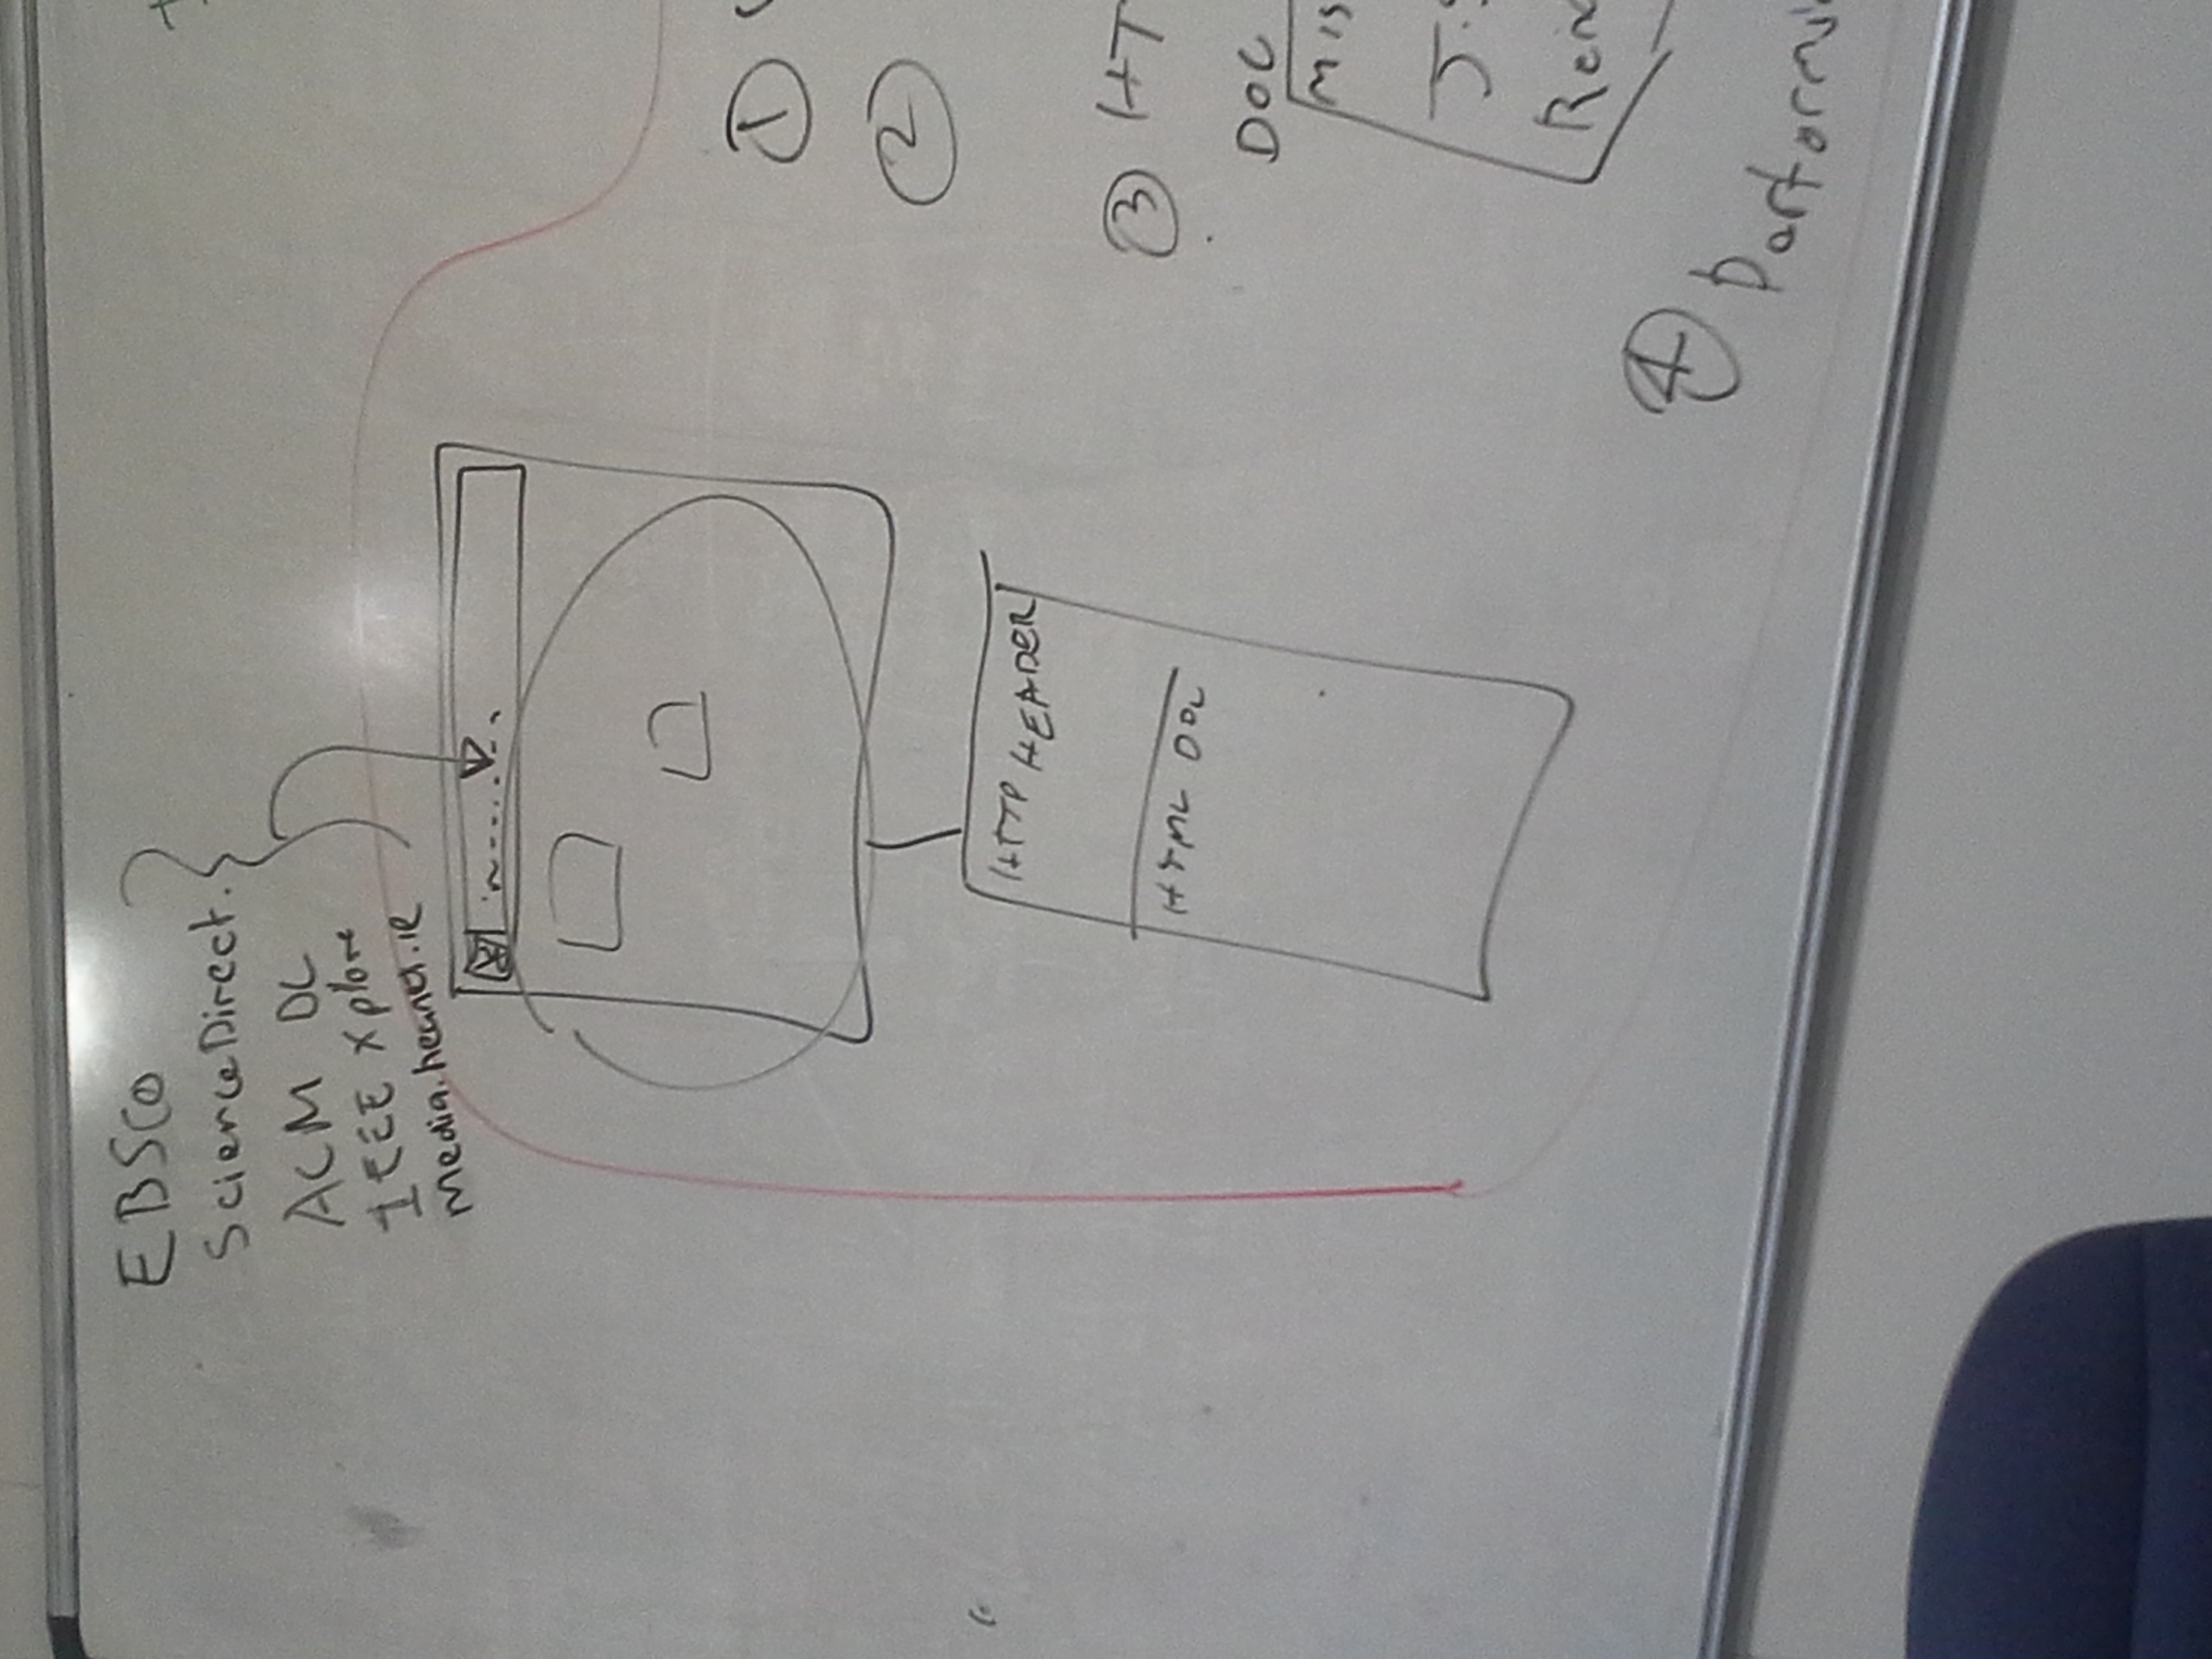 EBSCO
ScienceDirect.
ACM DL
IEEE Xplore
Media.heanet.ie
HTTP HEADER
HTML DOC
1
2
3 HT
DOC
MIS
J.S
Ren
4 Performa